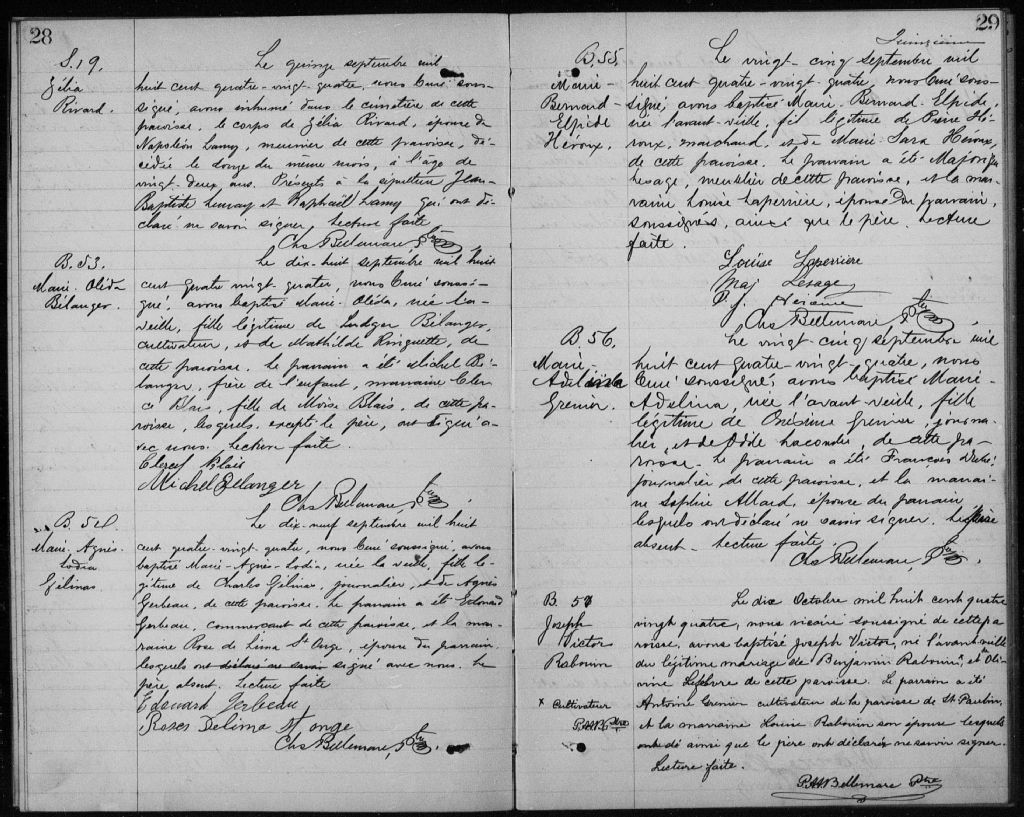 28
S. 19.
Zélia
Rivard.
Le quinze septembre mil
huit cent quatre-vingt-quatre, nous Curé sous-
signé, avons inhumé dans le cimetière de cette
paroisse, le corps de Zélia Rivard, épouse de
Napoléon Lamy, meunier de cette paroisse, dé-
cédée le douze du même mois, à l'âge de
vingt-deux ans. Présents à la sépulture Jean-
Baptiste Lamy et Raphaël Lamy qui ont dé-
claré ne savoir signer. Lecture faite.
Chs Bellemare Ptre
B. 53.
Marie-Oléda
Bélanger
Le dix-huit septembre mil huit
cent quatre vingt-quatre, nous Curé soussi-
gné, avons baptisé Marie-Oléda, née la
veille, fille légitime de Ludger Bélanger,
cultivateur, et de Mathilde Ringuette, de
cette paroisse. Le parrain a été Michel Bé-
langer, frère de l'enfant, marraine
Blais, fille de Moïse Blais, de cette pa-
roisse, lesquels excepté le père, ont signé a-
vec nous. Lecture faite.
Blais
Michel Bélanger
Chs Bellemare, Ptre
B. 54.
Marie-Agnès-
Lodia
Gélinas
Le dix-neuf septembre mil huit
cent quatre-vingt-quatre, nous Curé soussigné, avons
baptisé Marie-Agnès-Lodia, née la veille, fille lé-
gitime de Charles Gélinas, journalier, et de Agnès
Gerbeau, de cette paroisse. Le parrain a été Edouard
Gerbeau, commerçant de cette paroisse, et la mar-
raine Rose de Lima St Onge, épouse du parrain
lesquels ont déclaré ne savoir signé avec nous. Le
père absent. Lecture faite
Edouard Gerbeau
Roses Delima St onge
Chs Bellemare, Ptre
29
B. 55.
Marie-
Bernard
Elpide
Héroux.
Le vingt-cinq septembre mil
huit cent quatre-vingt-quatre, nous Curé sous-
signé, avons baptisé Marie-Bernard-Elpide,
née l'avant-veille, fils légitime de Pierre Hé-
roux, marchand, et de Marie-Sara Héroux,
de cette paroisse. Le parrain a été
Lesage, meublier de cette paroisse, et la mar-
raine Louise Laperrière, épouse du parrain,
soussignés, ainsi que le père. Lecture
faite.
Louise Laperrière
Maj Lesage
Chs Bellemare Ptre
B. 56.
Marie-
Adelina
Grenier.
Le vingt-cinq septembre mil
huit cent quatre-vingt-quatre, nous
Curé soussigné, avons baptisé Marie-
Adelina, née l'avant-veille, fille
légitime de Onésime Grenier, journa-
lier, et de Odile Lacombe, de cette pa-
roisse. Le parrain a été François Dubé,
journalier de cette paroisse, et la marrai-
ne Sophie Allard, épouse du parrain
lesquels ont déclaré ne savoir signer. Le père
absent - Lecture faite.
Chs Bellemare, Ptre.
B. 57
Joseph
Victor
Rabouin
x cultivateur
P.A.A.B. Ptre
Le dix Octobre mil huit cent quatre
vingt quatre, nous vicaire soussigné de cette pa
roisse, avons baptisé Joseph Victor, né l'avant-veille
du légitime mariage de Benjamin Rabouin x, et de Oli-
vine Lefebvre de cette paroisse. Le parrain a été
Antoine Grenier cultivateur de la paroisse de St Paulin,
et la marraine Louise Rabouin son épouse lesquels
ont dé ainsi que le père ont déclarés ne savoir signer.
Lecture faite.
P.A.A. Bellemare Ptre